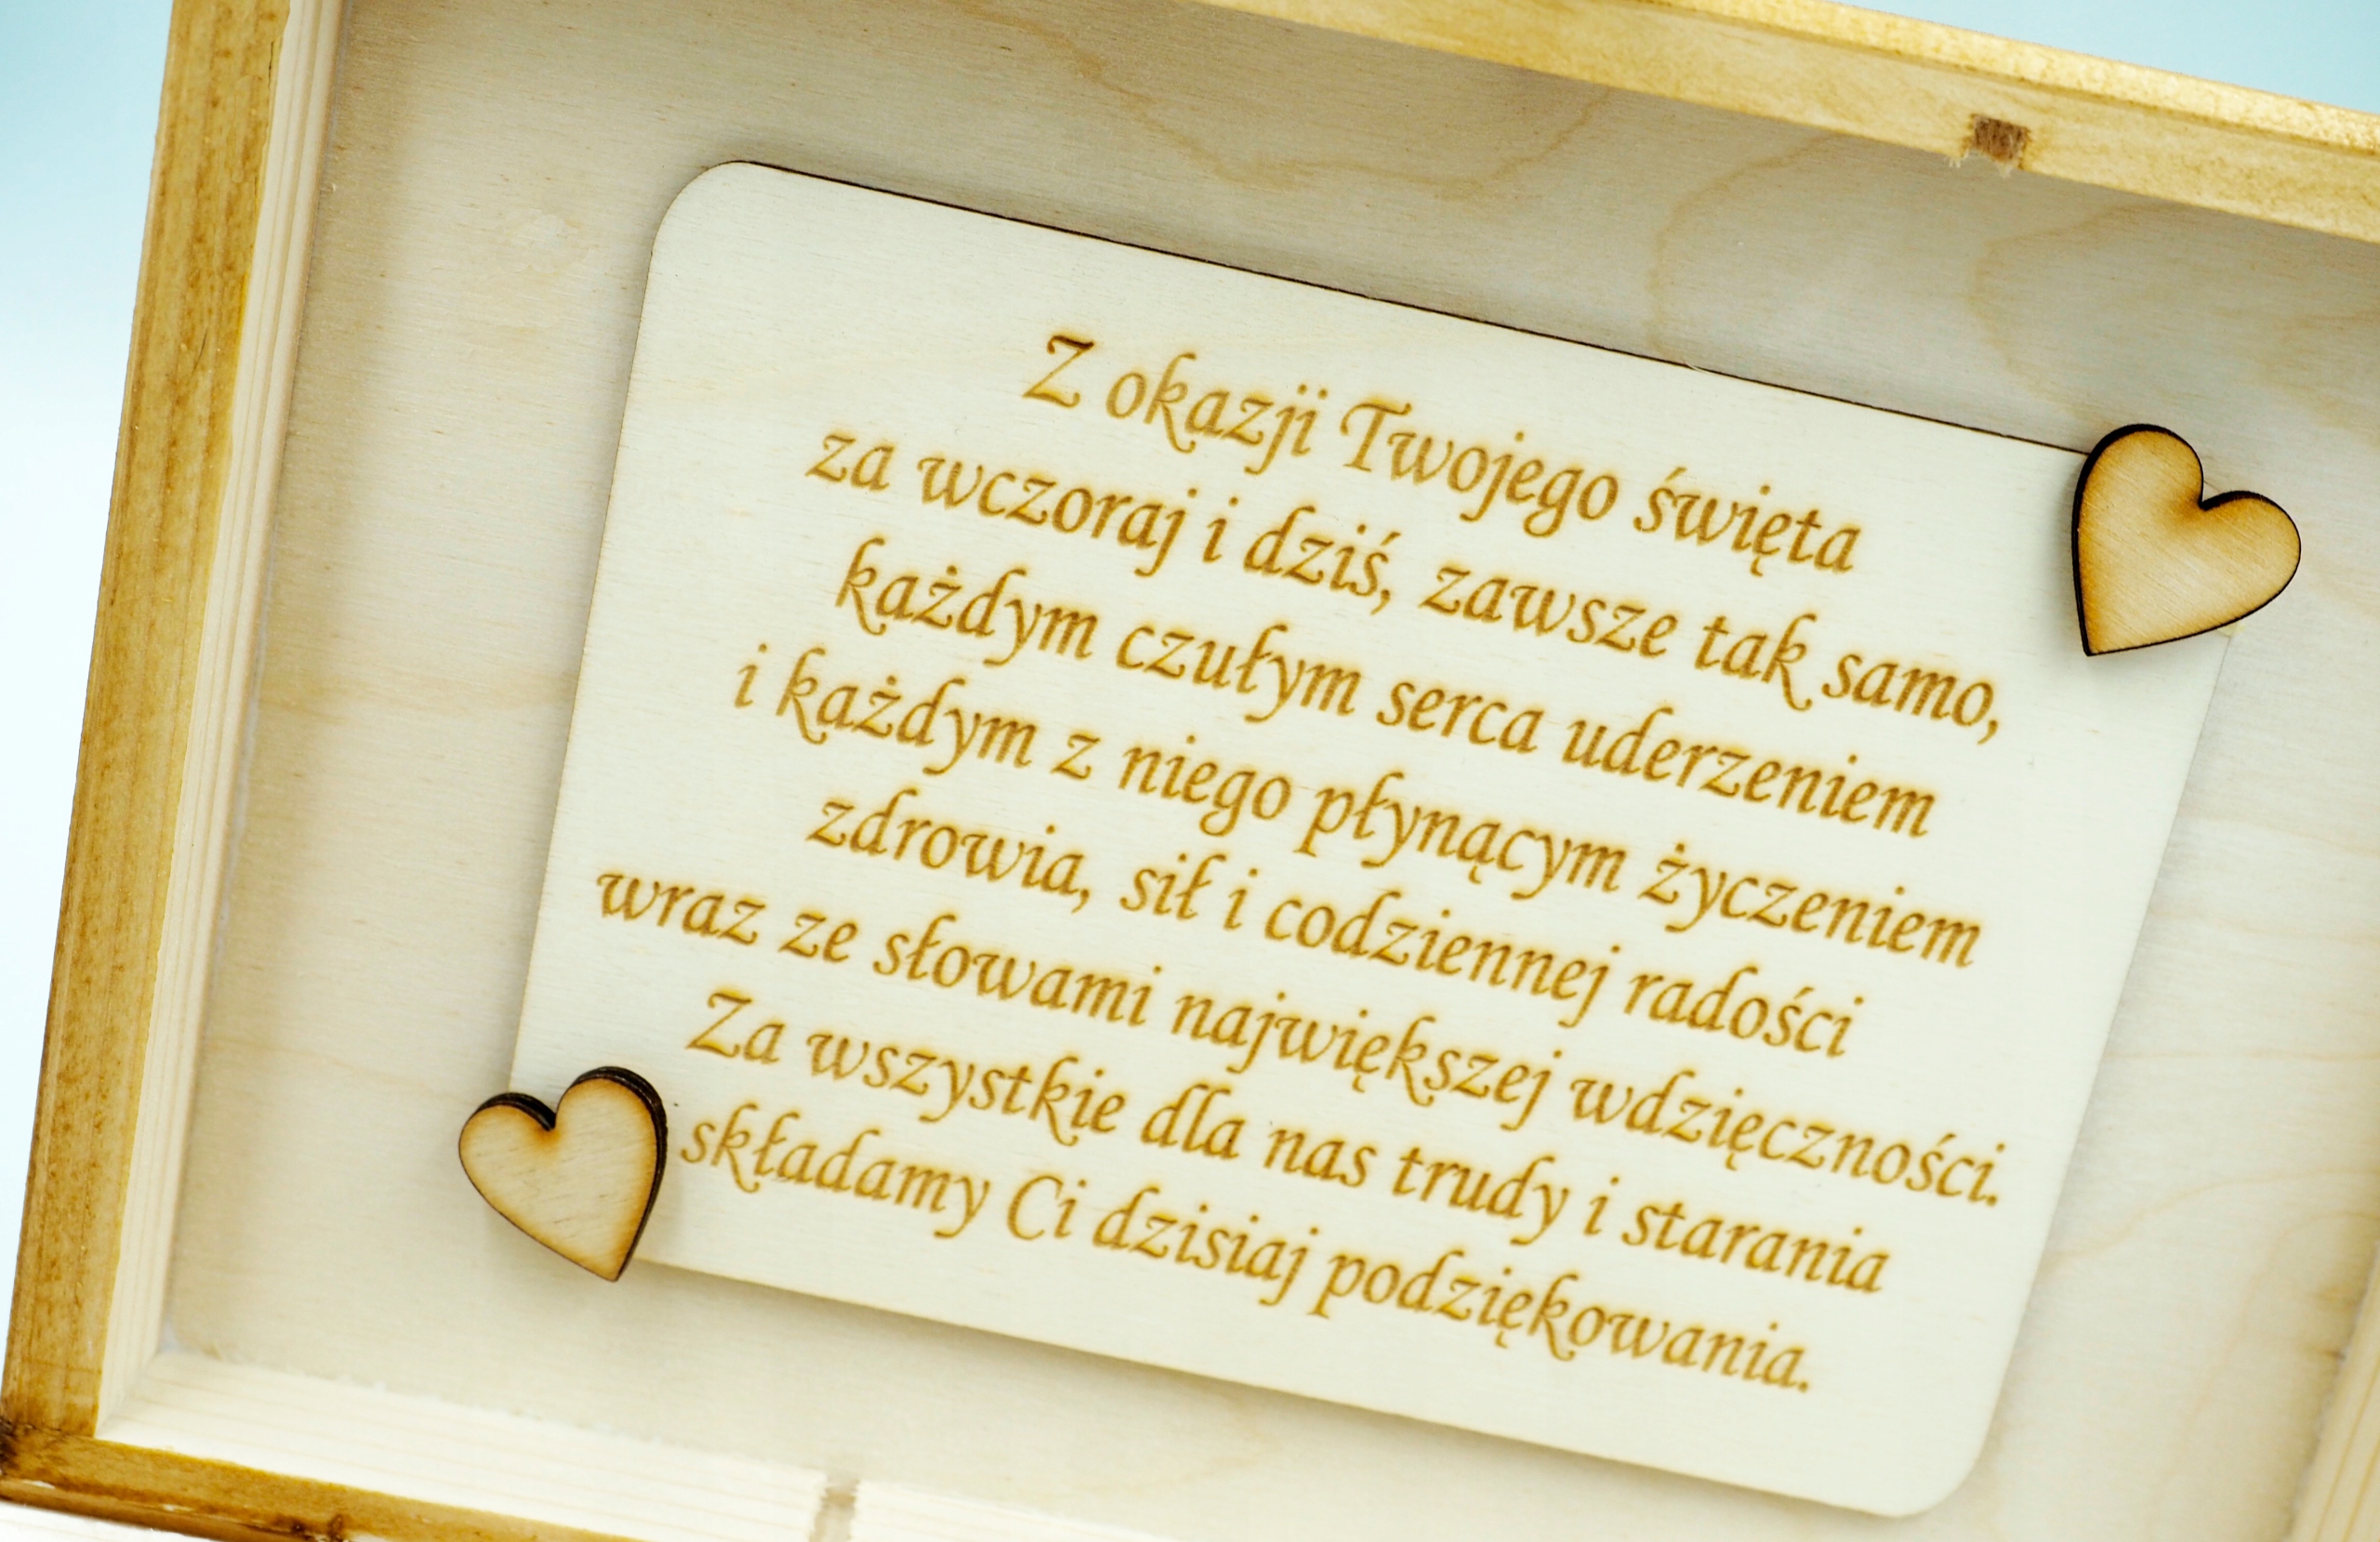 Z okazji Twojego święta
za wczoraj i dziś, zawsze tak samo,
każdym czułym serca uderzeniem
i każdym z niego płynącym życzeniem
zdrowia, sił i codziennej radości
wraz ze słowami największej wdzięczności.
Za wszystkie dla nas trudy i starania
składamy Ci dzisiaj podziękowania.